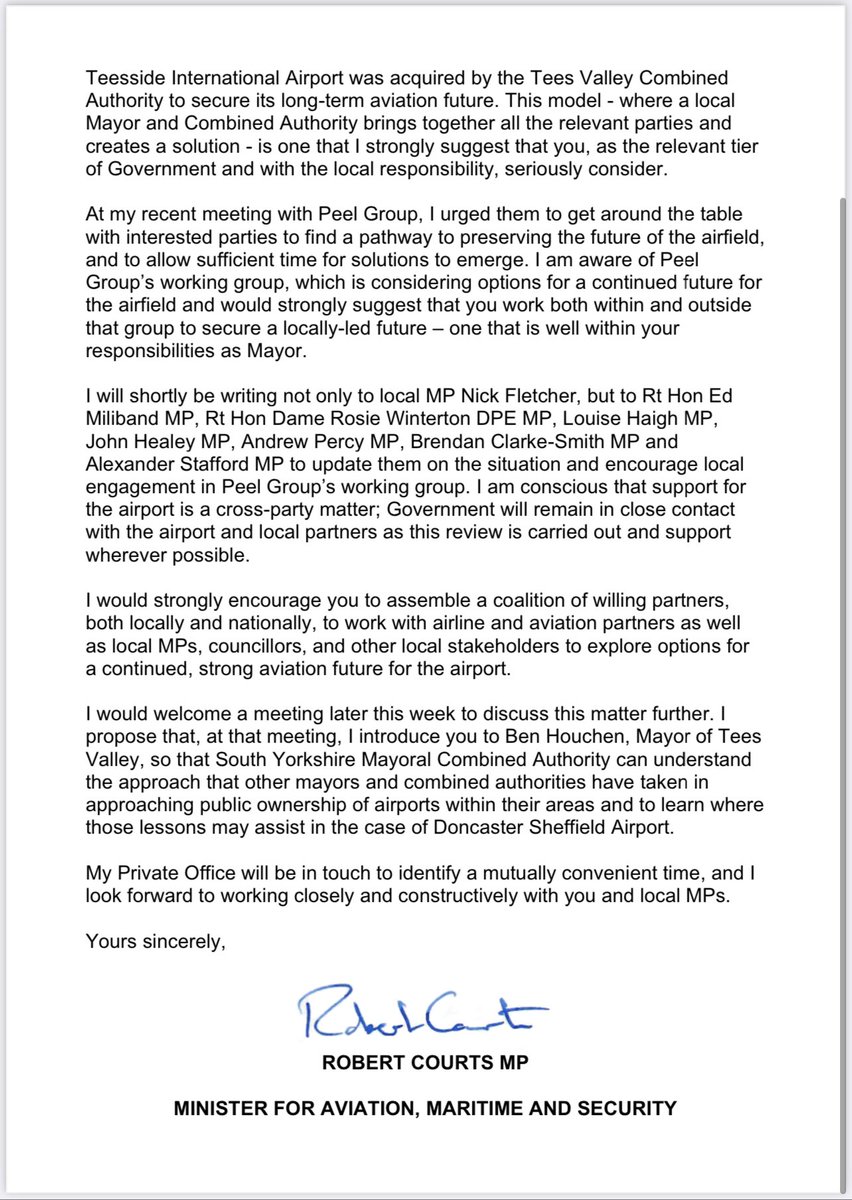 Teesside International Airport was acquired by the Tees Valley Combined
Authority to secure its long-term aviation future. This model - where a local
Mayor and Combined Authority brings together all the relevant parties and
creates a solution - is one that I strongly suggest that you, as the relevant tier
of Government and with the local responsibility, seriously consider.
At my recent meeting with Peel Group, I urged them to get around the table
with interested parties to find a pathway to preserving the future of the airfield,
and to allow sufficient time for solutions to emerge. I am aware of Peel
Group's working group, which is considering options for a continued future for
the airfield and would strongly suggest that you work both within and outside
that group to secure a locally-led future – one that is well within your
responsibilities as Mayor.
I will shortly be writing not only to local MP Nick Fletcher, but to Rt Hon Ed
Miliband MP, Rt Hon Dame Rosie Winterton DPE MP, Louise Haigh MP,
John Healey MP, Andrew Percy MP, Brendan Clarke-Smith MP and
Alexander Stafford MP to update them on the situation and encourage local
engagement in Peel Group's working group. I am conscious that support for
the airport is a cross-party matter; Government will remain in close contact
with the airport and local partners as this review is carried out and support
wherever possible.
I would strongly encourage you to assemble a coalition of willing partners,
both locally and nationally, to work with airline and aviation partners as well
as local MPs, councillors, and other local stakeholders to explore options for
a continued, strong aviation future for the airport.
I would welcome a meeting later this week to discuss this matter further. I
propose that, at that meeting, I introduce you to Ben Houchen, Mayor of Tees
Valley, so that South Yorkshire Mayoral Combined Authority can understand
the approach that other mayors and combined authorities have taken in
approaching public ownership of airports within their areas and to learn where
those lessons may assist in the case of Doncaster Sheffield Airport.
My Private Office will be in touch to identify a mutually convenient time, and I
look forward to working closely and constructively with you and local MPs.
Yours sincerely,
Robert Courts
ROBERT COURTS MP
MINISTER FOR AVIATION, MARITIME AND SECURITY